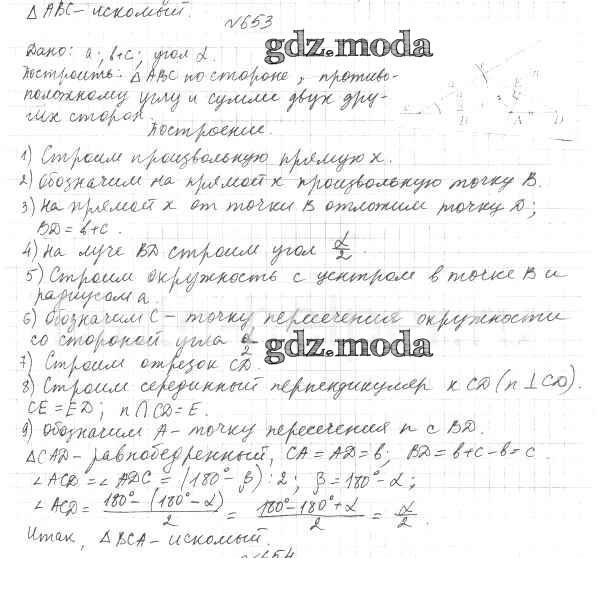 △ABC – искомый.
№653
gdz.moda
Дано: a; b+c; угол α.
Построить: △ABC по стороне, противо-
положному углу и сумме двух дру-
гих сторон.
Построение.
1) Строим произвольную прямую x.
2) Обозначим на прямой x произвольную точку B.
3) На прямой x от точки B отложим точку D;
BD = b+c.
4) На луче BD строим угол α/2.
5) Строим окружность с центром в точке B и
радиусом a.
6) Обозначим C – точку пересечения окружности
со стороной угла α/2
gdz.moda
7) Строим отрезок CD.
8) Строим серединный перпендикуляр к CD (n ⊥ CD).
CE = ED; n ∩ CD = E.
9) Обозначим A – точку пересечения n с BD.
△CAD – равнобедренный, CA = AD = b; BD = b+c-b = c.
∠ACD = ∠ADC = (180° - β) : 2; β = 180° - α;
∠ACD = 180° - (180° - α)/2 = 180° - 180° + α/2 = α/2.
Итак, △BCA – искомый.
№654